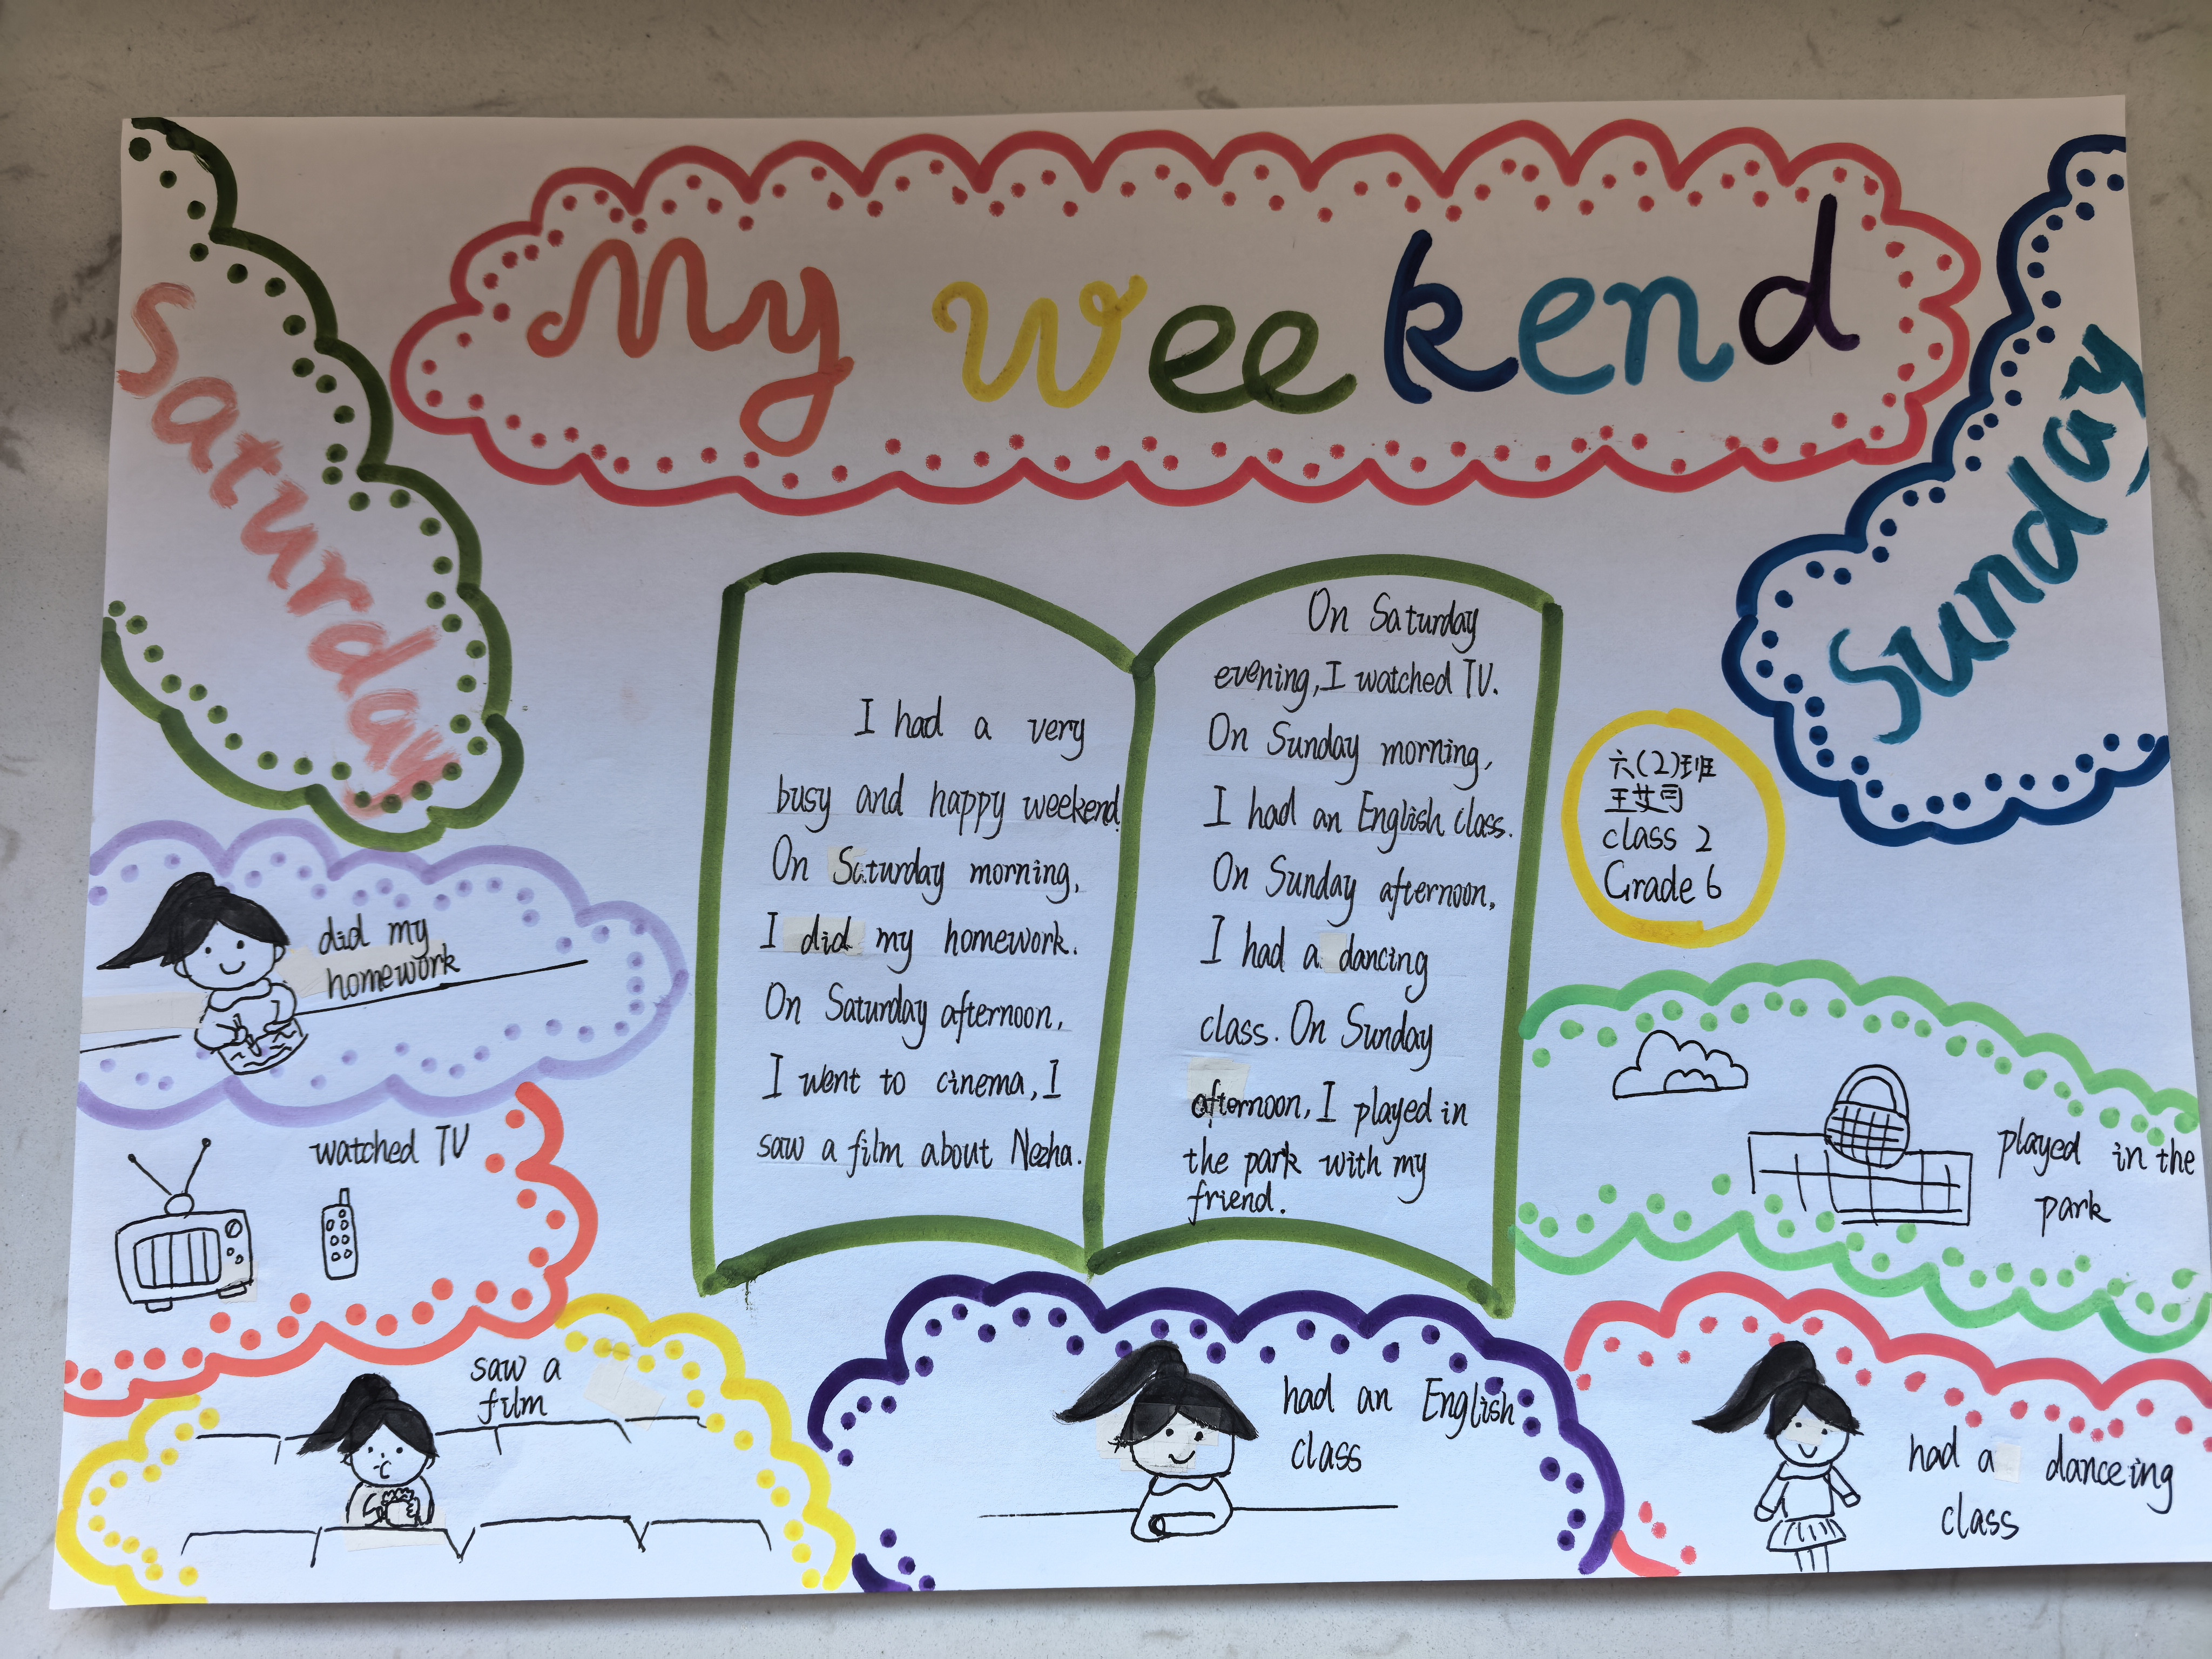 My weekend
Saturday
Sunday
I had a very
busy and happy weekend.
On Saturday morning,
I did my homework.
On Saturday afternoon,
I went to cinema, I
saw a film about Nezha.
On Saturday
evening, I watched TV.
On Sunday morning,
I had an English class.
On Sunday afternoon,
I had a dancing
class. On Sunday
afternoon, I played in
the park with my
friend.
六(2)班
王艾司
class 2
Grade 6
did my
homework
watched TV
saw a
film
had an English
class
played in the
park
had a danceing
class